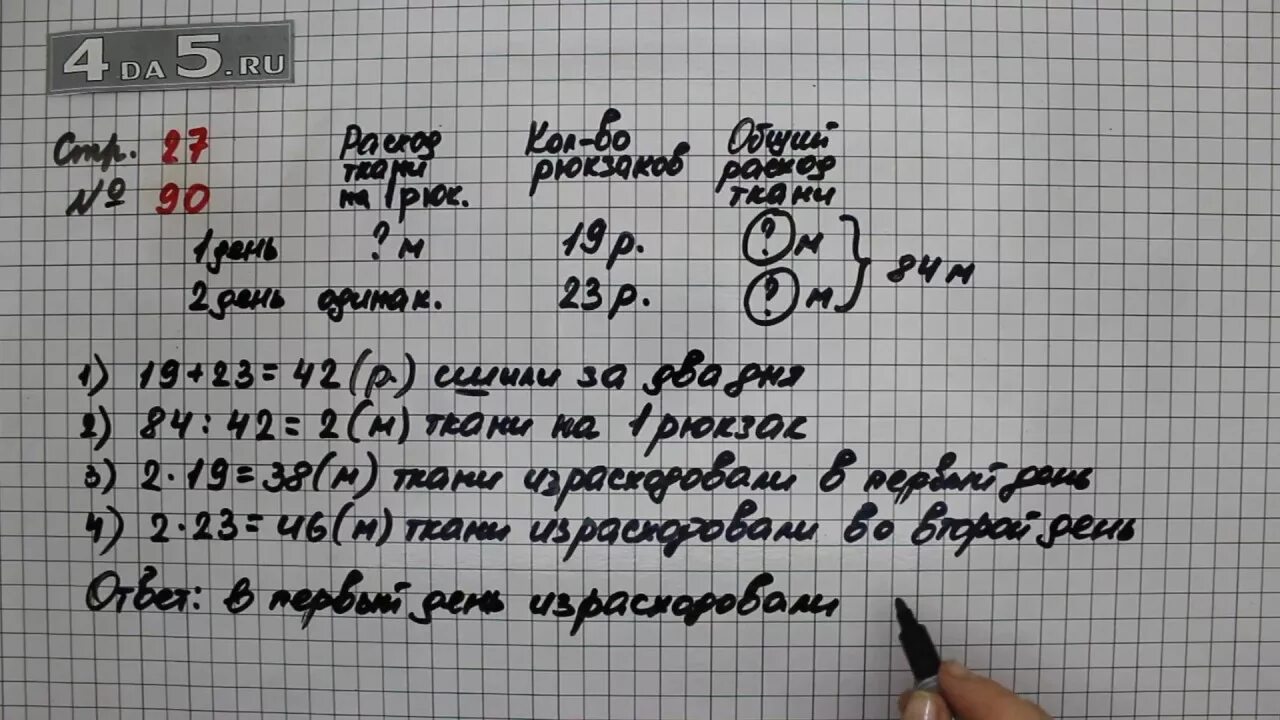 4 DA 5.RU
Стр. 27
№ 90
Расход ткани на 1 рюк.
Кол-во рюкзаков
Общий расход ткани
1 день ? м 19 р. ? м
2 день одинак. 23 р. ? м
} 84 м
1) 19 + 23 = 42 (р.) сшили за два дня
2) 84 : 42 = 2 (м) ткани на 1 рюкзак
3) 2 · 19 = 38 (м) ткани израсходовали в первый день
4) 2 · 23 = 46 (м) ткани израсходовали во второй день
Ответ: в первый день израсходовали